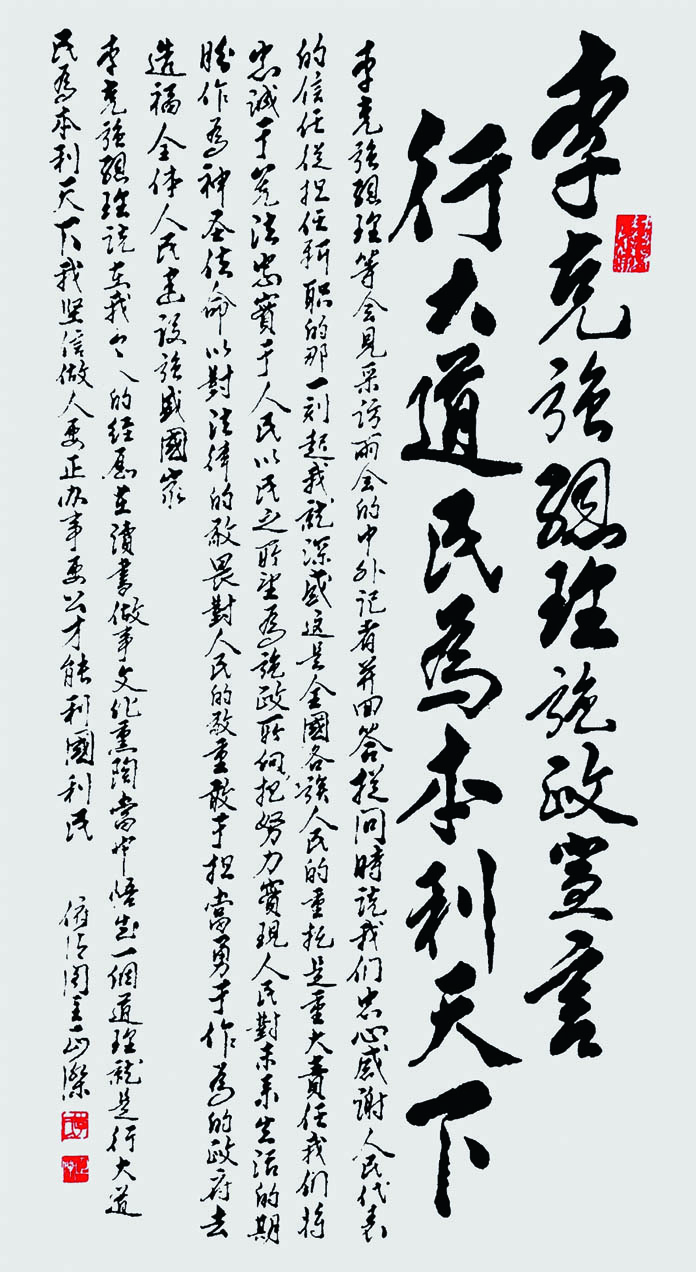 李克強總理施政宣言
行大道民為本利天下
李克強總理等会見采訪兩会的中外记者并回答提问時说我们忠心感谢人民代表
的信任從担任新職的那一刻起我就深感这是全國各族人民的重托是重大責任我们将
忠诚于宪法忠實于人民以民之所望為施政所向把努力實現人民對未来生活的期
盼作為神圣使命以對法律的敬畏對人民的敬重敢于担當勇于作為的政府去
造福全体人民建设強盛國家
李克強總理说在我个人的经历在讀書做事文化熏陶當中悟出一個道理就是行大道
民為本利天下我坚信做人要正办事要公才能利國利民